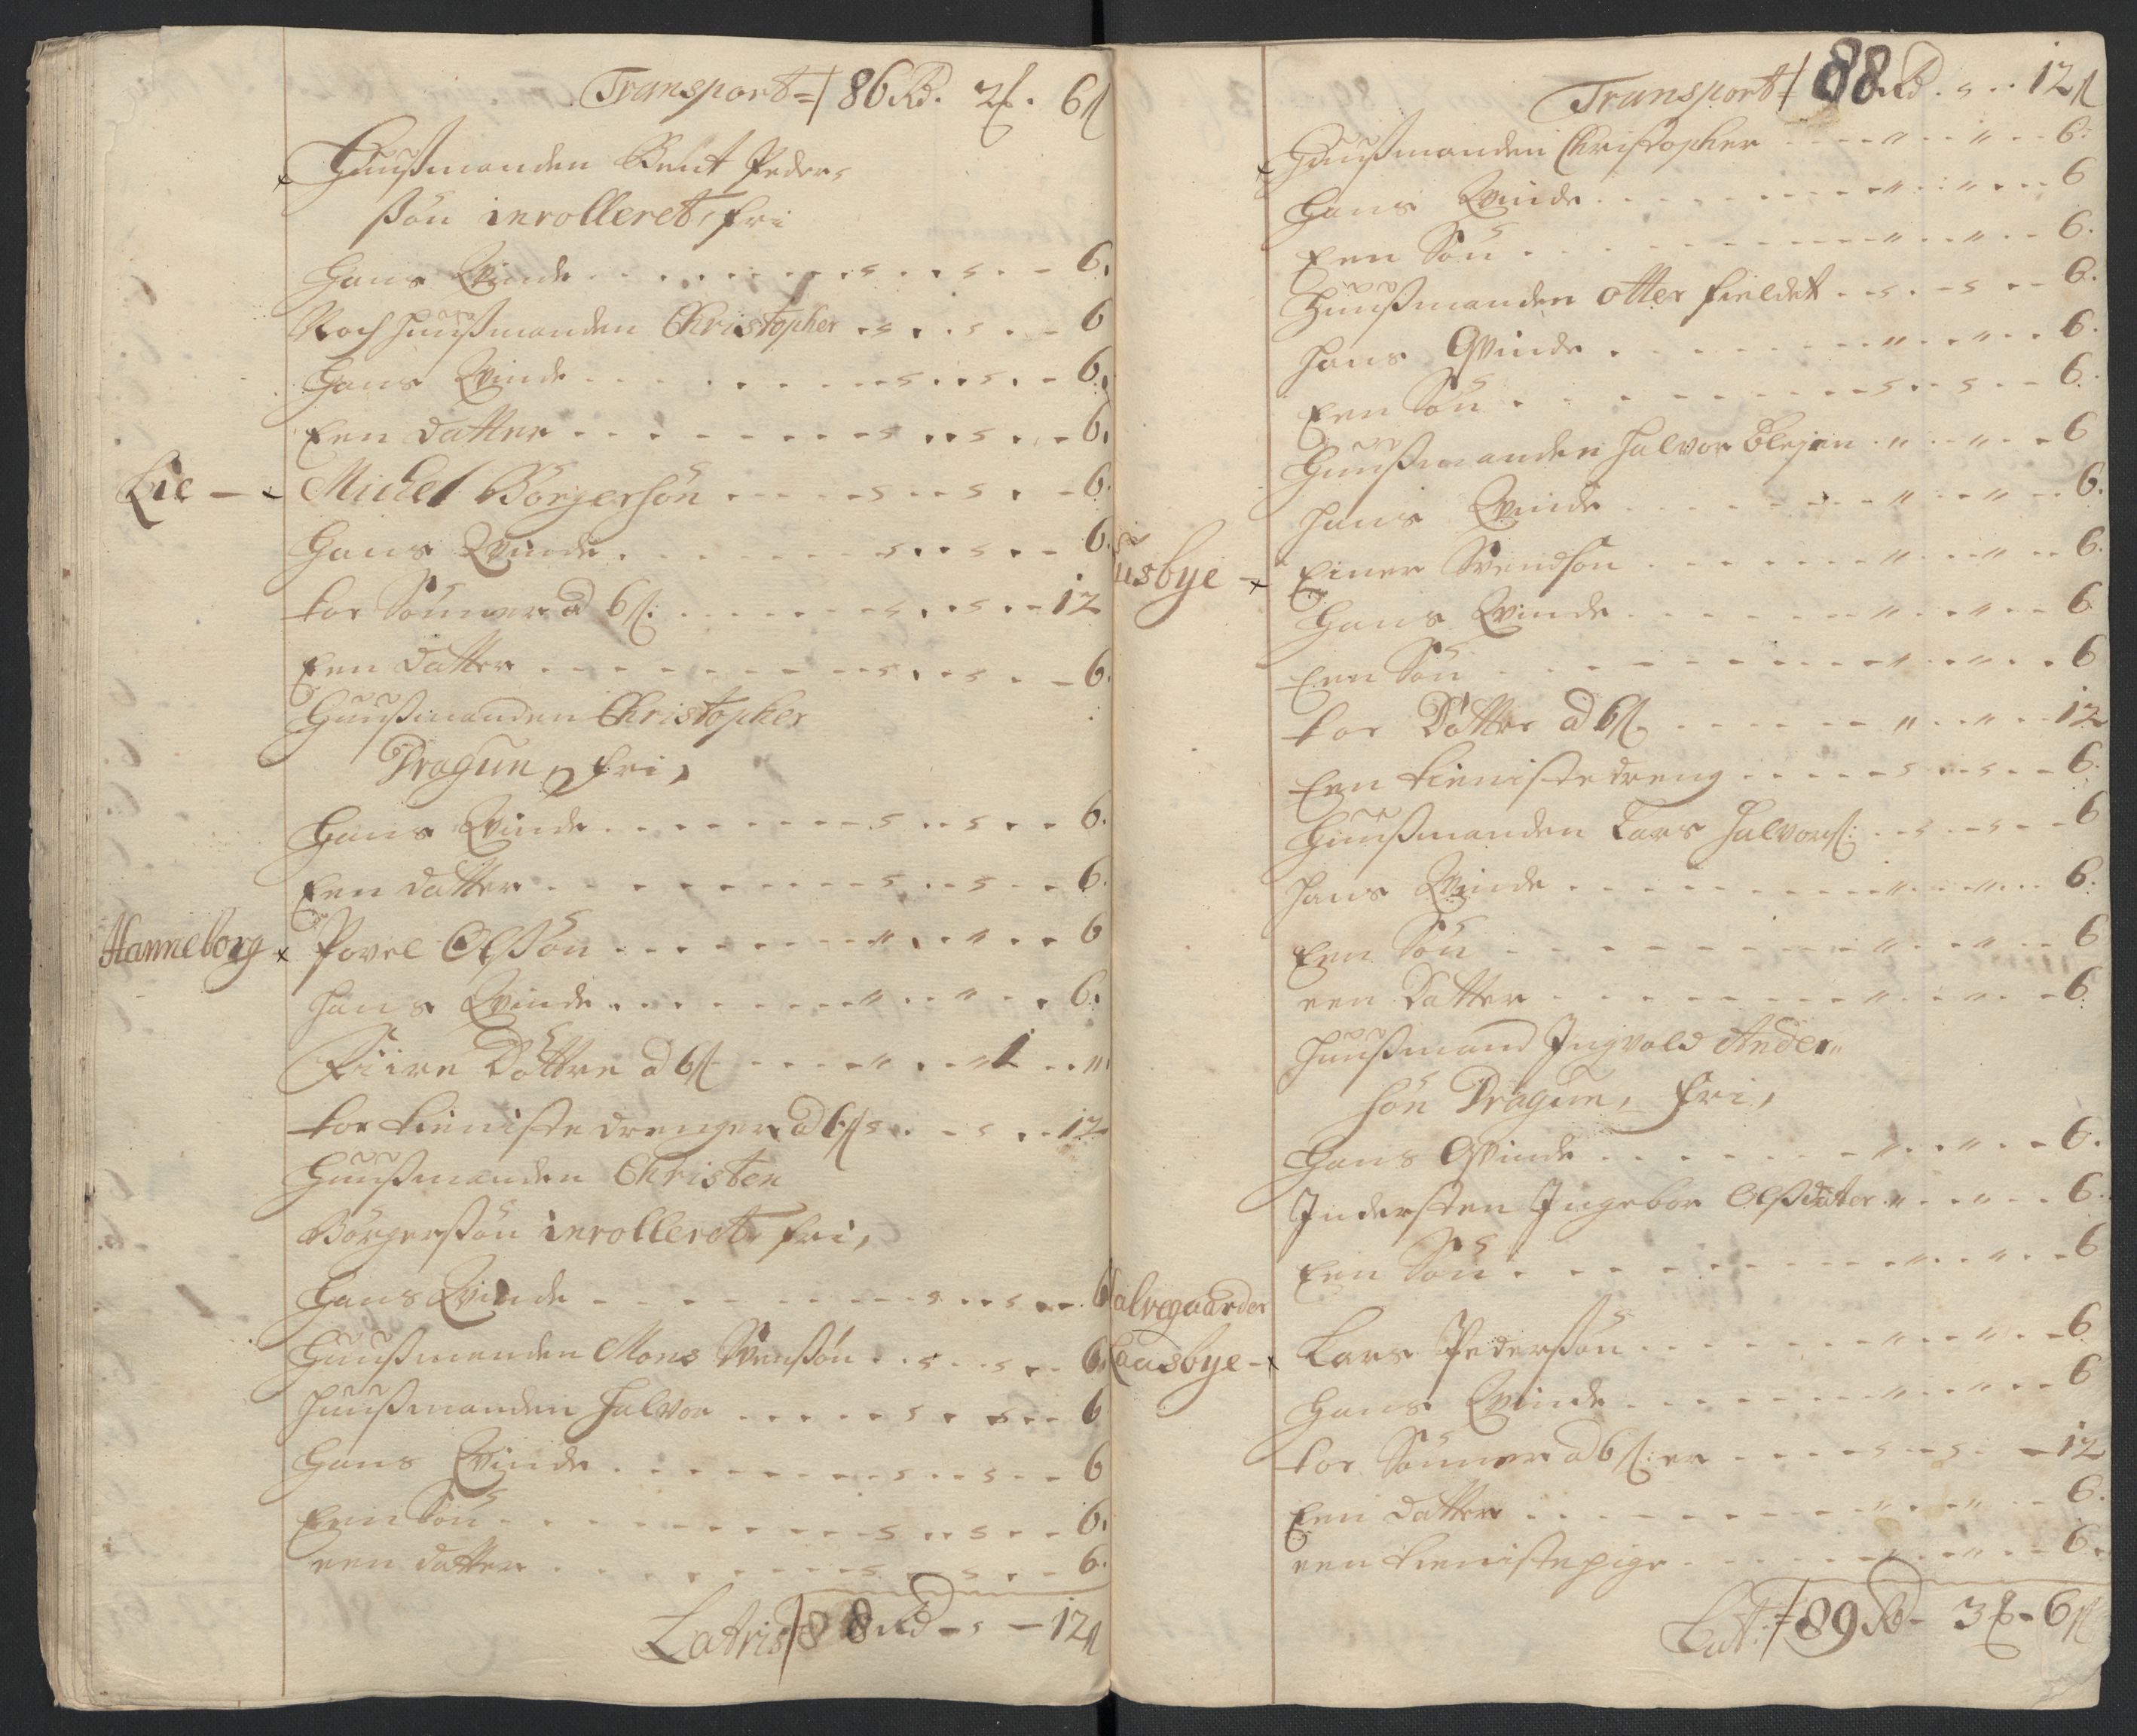 Transport 86 Rd. 2 ß. 6 ß
Huußmanden Bent Peders
ßön inrolleret, fri
Hans Qvinde 6.
Noch Huußmanden Christopher 6
Hans Qvinde 6.
Een datter 6.
Lie - Michel Börgersön 6.
Hans Qvinde 6.
toe Sönner a 6 ß: 12
Een datter 6.
Huußmanden Christopher
Dragun, fri,
Hans Qvinde 6.
Een datter 6.
Hanneborg Povel Olßön " " 6
Hans Qvinde " " 6.
Fiire Döttre a 6 ß " 1 "
toe tieniste drenger a 6 ß 12
Huußmanden Christen
Börgerßön inrolleret, fri,
Hans Qvinde 6
Huußmanden Mons Svenßön 6.
Huußmanden Halvor 6
Hans Qvinde 6
Een Sön 6.
een datter 6.
Latris 88 Rd - 12 ß
Transport 88 Rd. 12 ß
Huußmanden Christopher " " 6.
Hans Qvinde " " 6
Een Sön " " 6.
Huußmanden otter fieldet 6.
Hans Qvinde " " 6.
Een Sön 6.
Huußmanden Halvor " " 6
Hans Qvinde " " 6.
usbye - Einer Svendsön " " 6.
Hans Qvinde " " 6
Een Sön " " 6
toe Döttre a 6 ß " " 12
Een tieniste dreng 6.
Huußmanden Lars Halvorß: 6
Hans Qvinde " " 6.
Een Sön " " 6
een Datter " " 6.
Huußmand Ingvold Ander
sön Dragun, fri,
Hans Qvinde " " 6.
Indersten Ingebor Olßdatter " " 6.
Een Sön " " 6
alvegaarder
aasbye - Lars Pederßön " " 6
Hans Qvinde " " 6
toe Sönner a 6 ß: er 12
Een datter " " 6.
een tienistepige " " 6.
Lat: 89 Rd - 3 ß - 6 ß